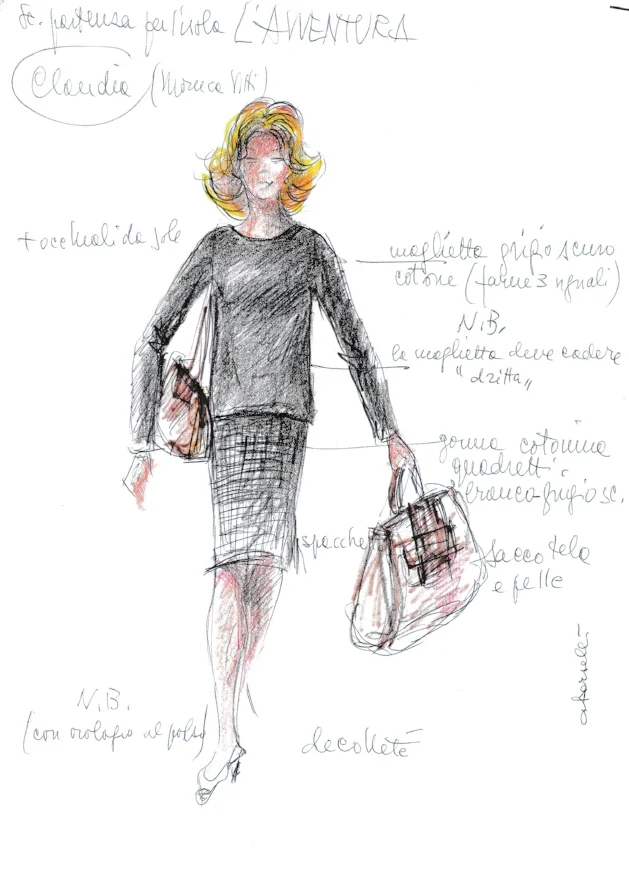 Sc. partenza per l'isola L'AVVENTURA
Claudia (Monica Vitti)
+ occhiali da sole
maglietta grigio scuro
cotone (farne 3 uguali)
N.B.
la maglietta deve cadere
"dritta"
gonna cotonina
quadretti
bianco-grigio sc.
spacchetti
sacco tela
e pelle
N.B.
(con orologio al polso)
decolleté